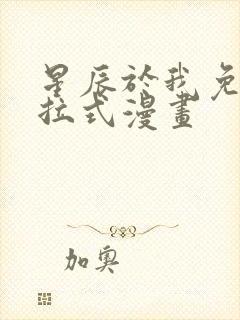 星辰於我免
拉式漫畫
加奧